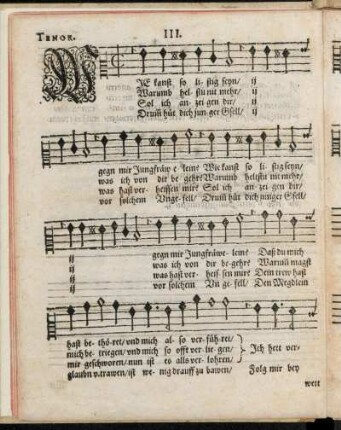 TENOR.
III.
WIE kanst so listig seyn/ ij
Warumb helstu nit mehr/ ij
Sol ich anzeigen dir/ ij
Drum̃ hüt dich junger Gsell/ ij
gegn mir Jungfräwe leine Wie kanst so listig seyn/
was ich von dir begehr Warumb helstu nit mehr/
was hast verheissen mir? Sol ich anzeigen dir/
vor solchem Ungefell/ Drum̃ hüt dich junger Gsell/
ij gegn mir Jungfräwelein? Daß du mich
ij was ich von dir begehrt Warum̃ magst
ij was hast verheissen mir? Dein trew hast
ij vor solchem Ungefell/ Den Megdlein
hast bethöret/ vnd mich also verführet/
mich betriegen/ vnd mich so offt verliegen/ Ich hett ver-
mir geschworen/ nun ist es alls verlohren/
glaubn v. trawen/ ist wenig drauff zu bawen/ Folg mir bey
weil